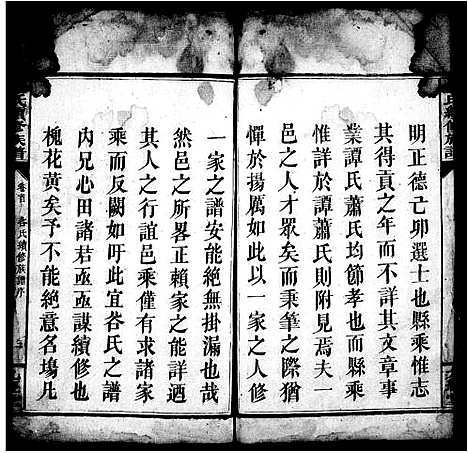 明正德己卯選士也縣乘惟志
其得貢之年而不詳其文章事
業譚氏蕭氏均節孝也而縣乘
惟詳於譚蕭氏則附見焉夫一
邑之人才眾矣而秉筆之際猶
憚於揚厲如此以一家之人修
一家之譜安能無掛漏也哉
然邑之所畧正賴家之能詳迺
其人之行誼邑乘僅有求諸家
乘而反闕如吁此宜谷氏之譜
內兄心田諸君亟亟謀續修也
槐花黃矣予不能絕意名塲凡
氏續修族譜
卷首 谷氏續修族譜序